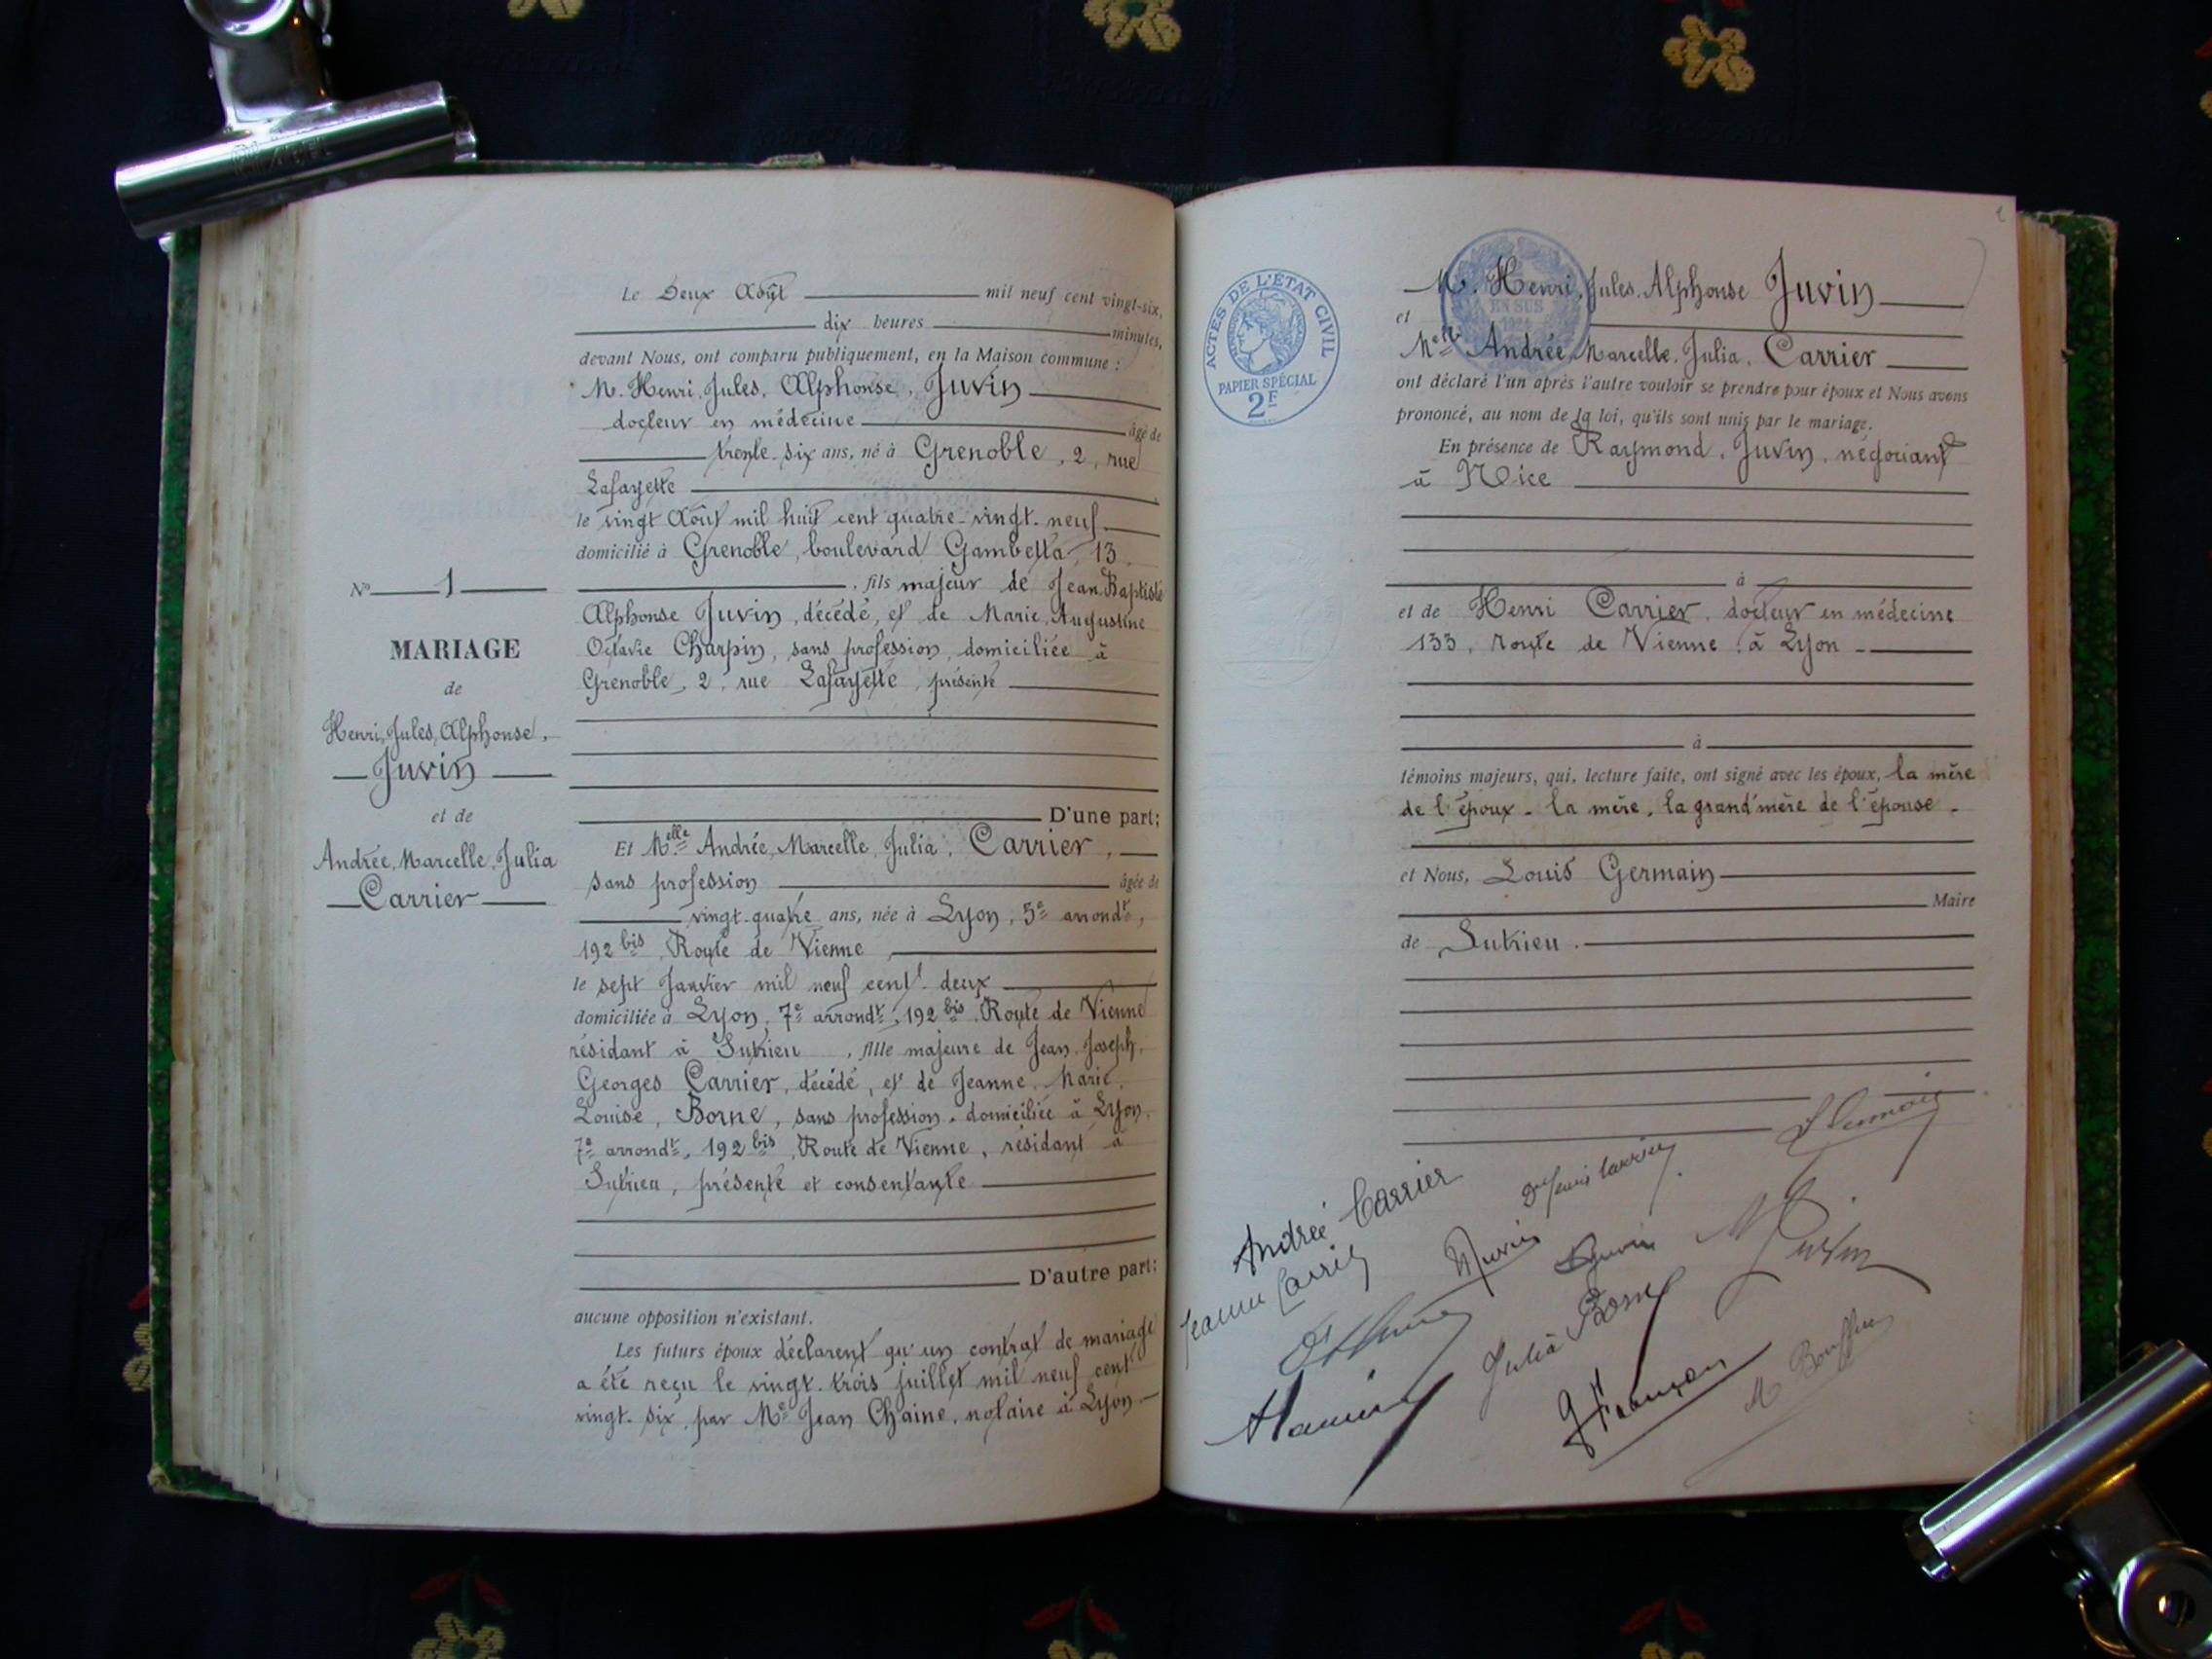 Le Deux Août mil neuf cent vingt-six,
dix heures minutes,
devant Nous, ont comparu publiquement, en la Maison commune :
M. Henri, Jules, Alphonse, Juvin
docteur en médecine âgé de
trente-six ans, né à Grenoble, 2, rue
Lafayette
le vingt Août mil huit cent quatre-vingt-neuf
domicilié à Grenoble, boulevard Gambetta, 13
, fils majeur de Jean Baptiste
Alphonse Juvin, décédé, et de Marie, Augustine
Octavie Charpin, sans profession, domiciliée à
Grenoble, 2, rue Lafayette, présente
D'une part;
Et Melle Andrée, Marcelle, Julia, Carrier,
sans profession âgée de
vingt-quatre ans, née à Lyon, 5e arrondt,
192 bis, Route de Vienne,
le sept Janvier mil neuf cent deux
domiciliée à Lyon, 7e arrondt, 192 bis, Route de Vienne
résidant à Sutrieu, fille majeure de Jean, Joseph,
Georges Carrier, décédé, et de Jeanne, Marie,
Louise, Borne, sans profession, domiciliée à Lyon,
7e arrondt, 192 bis, Route de Vienne, résidant à
Sutrieu, présente et consentante
D'autre part;
aucune opposition n'existant.
Les futurs époux déclarent qu'un contrat de mariage
a été reçu le vingt-trois juillet mil neuf cent
vingt-six, par Me Jean Chaine, notaire à Lyon
No 1
MARIAGE
de
Henri, Jules, Alphonse,
Juvin
et de
Andrée, Marcelle, Julia
Carrier
ACTES DE L'ÉTAT CIVIL
PAPIER SPÉCIAL
2F
EN SUS
M. Henri, Jules, Alphonse Juvin
et
Melle Andrée, Marcelle, Julia, Carrier
ont déclaré l'un après l'autre vouloir se prendre pour époux et Nous avons
prononcé, au nom de la loi, qu'ils sont unis par le mariage.
En présence de Raymond, Juvin, négociant
à Nice
à
et de Henri Carrier, docteur en médecine
133, route de Vienne, à Lyon
à
témoins majeurs, qui, lecture faite, ont signé avec les époux, la mère
de l'époux - la mère, la grand'mère de l'épouse -
et Nous, Louis Germain
Maire
de Sutrieu.
L Germain
Andrée Carrier
Dr Henri Carrier
Jeanne Carrier
Juvin
Julia Borne